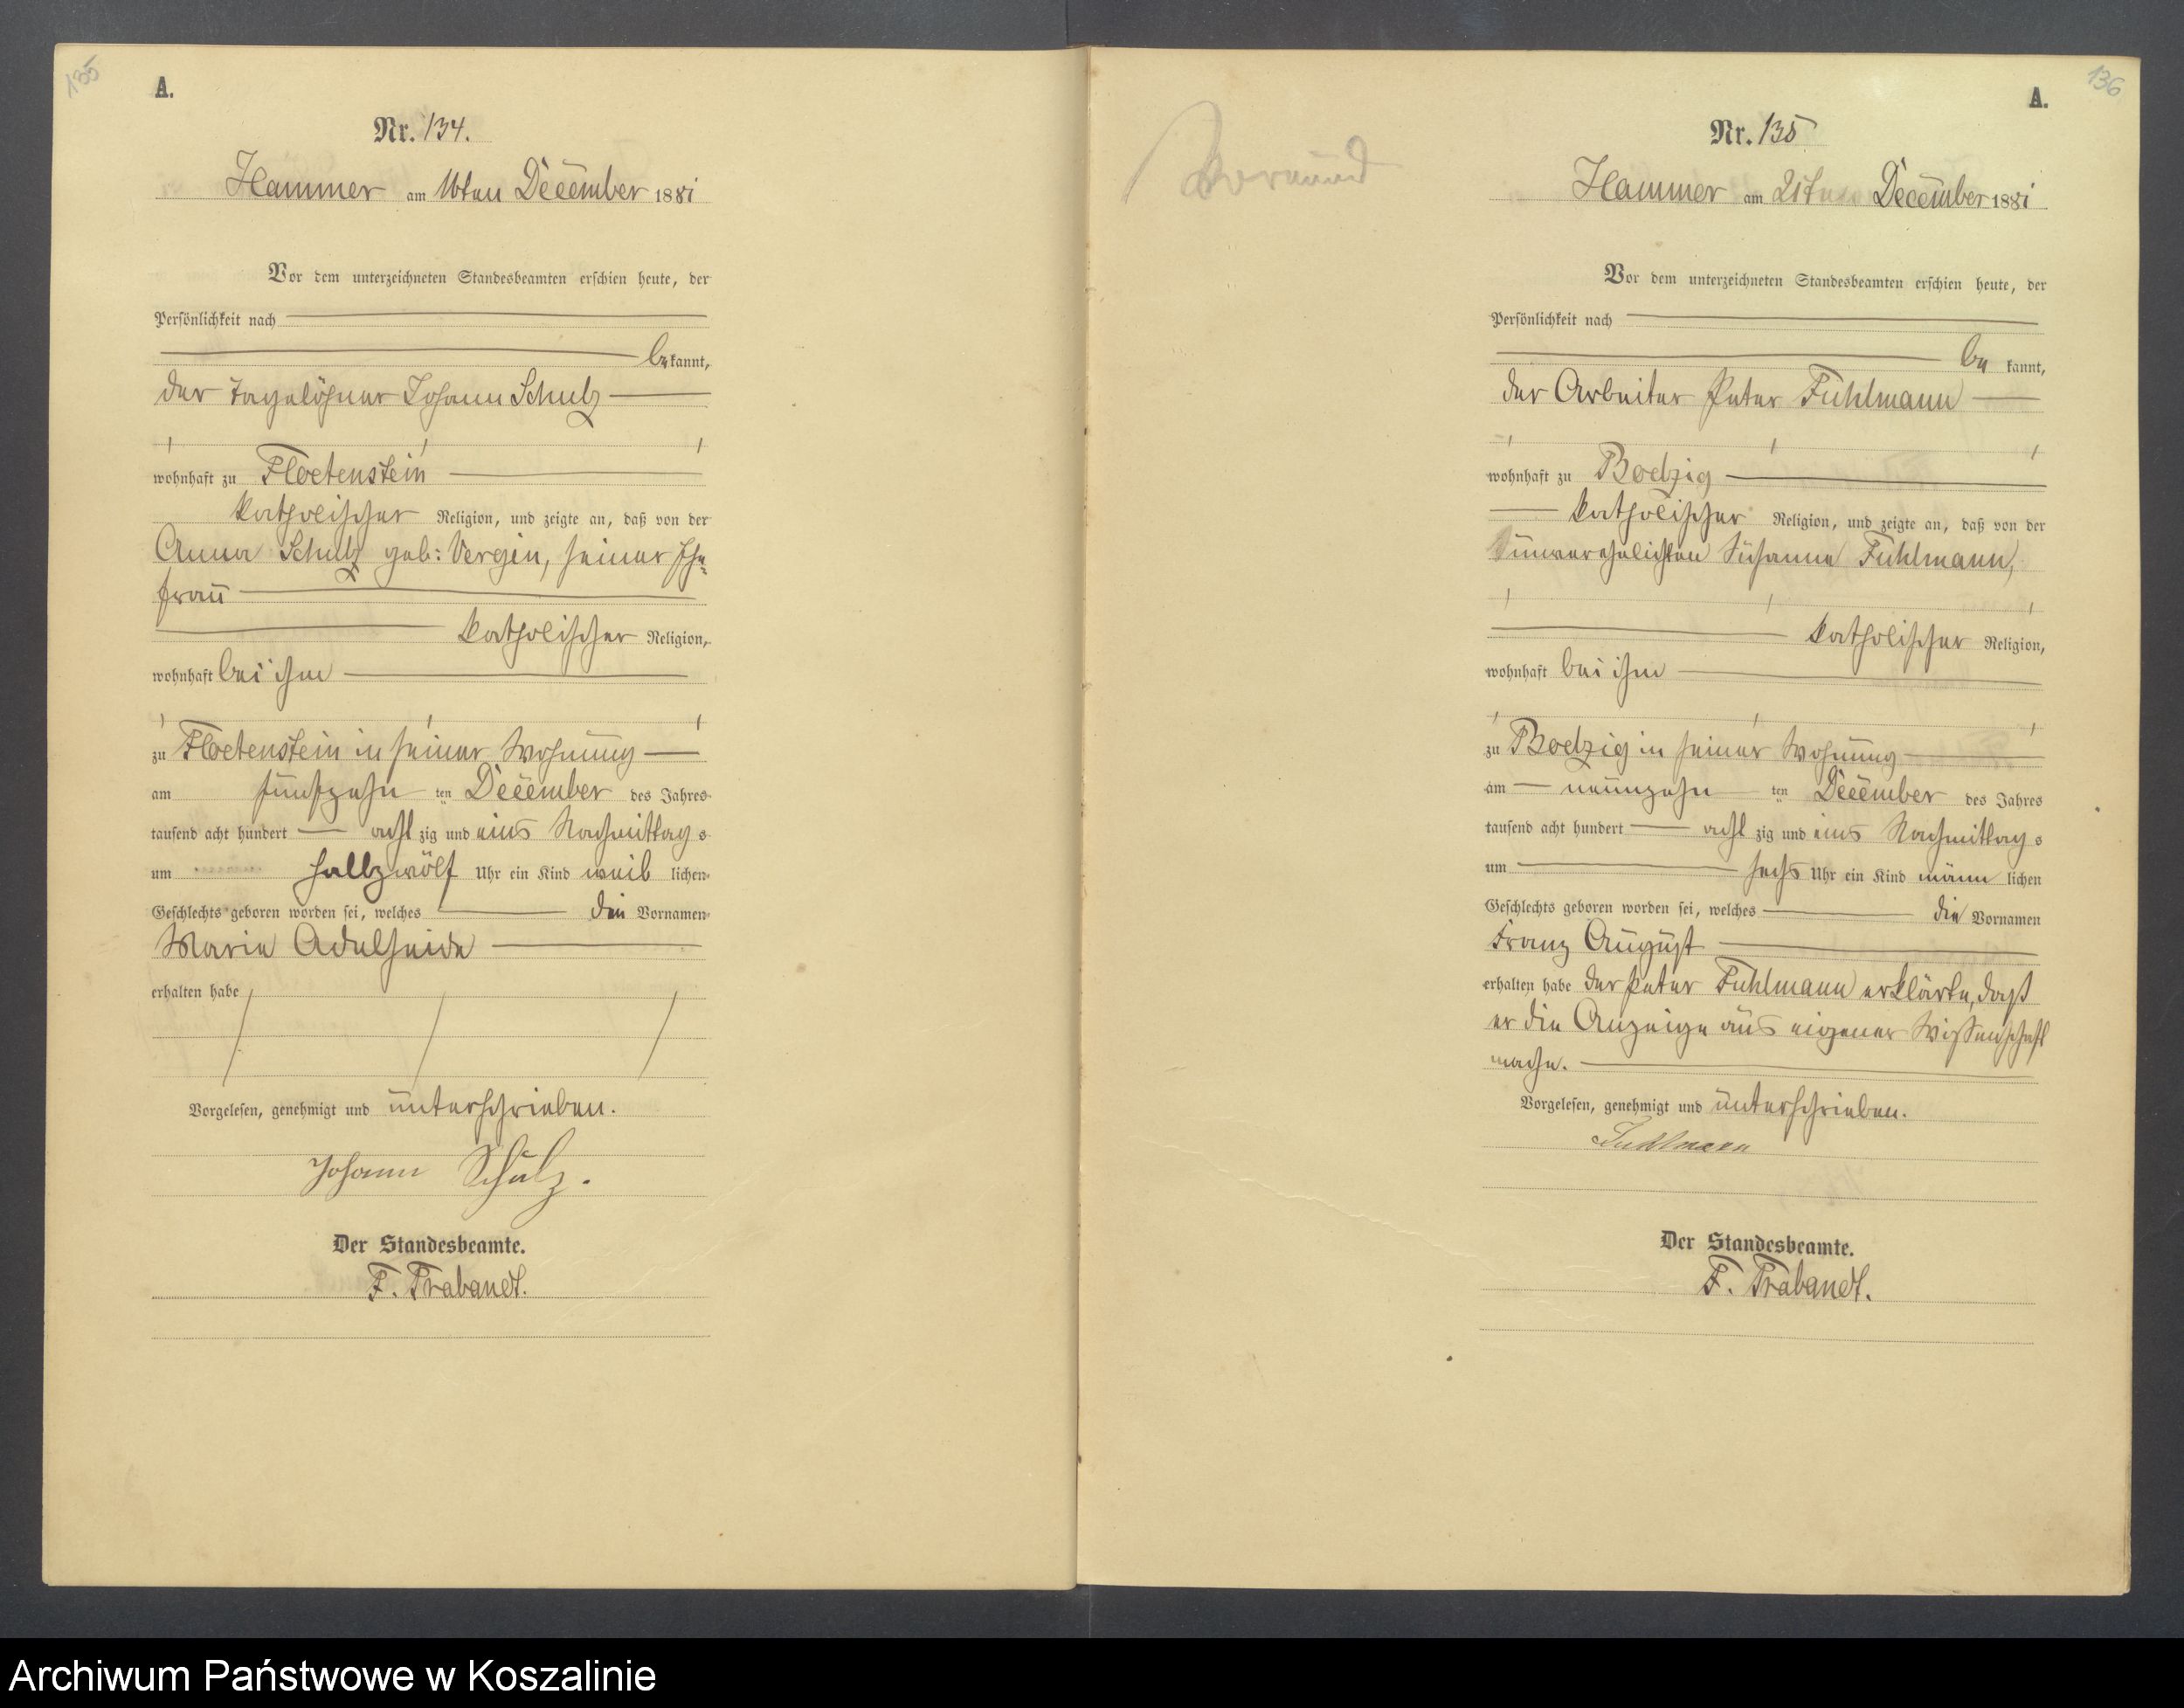 135
A.
Nr. 134.
Hammer am 16ten December 1881
Vor dem unterzeichneten Standesbeamten erschien heute, der
Persönlichkeit nach
bekannt,
der Tagelöhner Johann Schulz
wohnhaft zu Floetenstein
katholischer Religion, und zeigte an, daß von der
Anna Schulz geb: Vergin, seiner Ehe-
frau
katholischer Religion,
wohnhaft bei ihm
zu Floetenstein in seiner Wohnung
am fünfzehn ten December des Jahres
tausend acht hundert acht zig und eins Nachmittags
um halbzwölf Uhr ein Kind weib lichen
Geschlechts geboren worden sei, welches die Vornamen
Marie Adelheide
erhalten habe
Vorgelesen, genehmigt und unterschrieben.
Johann Schulz.
Der Standesbeamte.
F. Trabandt.
136
A.
Vormund
Nr. 135
Hammer am 21ten December 1881
Vor dem unterzeichneten Standesbeamten erschien heute, der
Persönlichkeit nach
be kannt,
der Arbeiter Peter Fuhlmann
wohnhaft zu Boelzig
katholischer Religion, und zeigte an, daß von der
unverehelichten Susanna Fuhlmann,
katholischer Religion,
wohnhaft bei ihm
zu Boelzig in seiner Wohnung
am neunzehn ten December des Jahres
tausend acht hundert acht zig und eins Nachmittags
um sechs Uhr ein Kind männ lichen
Geschlechts geboren worden sei, welches die Vornamen
Franz August
erhalten habe der Peter Fuhlmann erklärte, daß
er die Anzeige aus eigener Wissenschaft
mache.
Vorgelesen, genehmigt und unterschrieben.
Fuhlmann
Der Standesbeamte.
F. Trabandt.
Archiwum Państwowe w Koszalinie